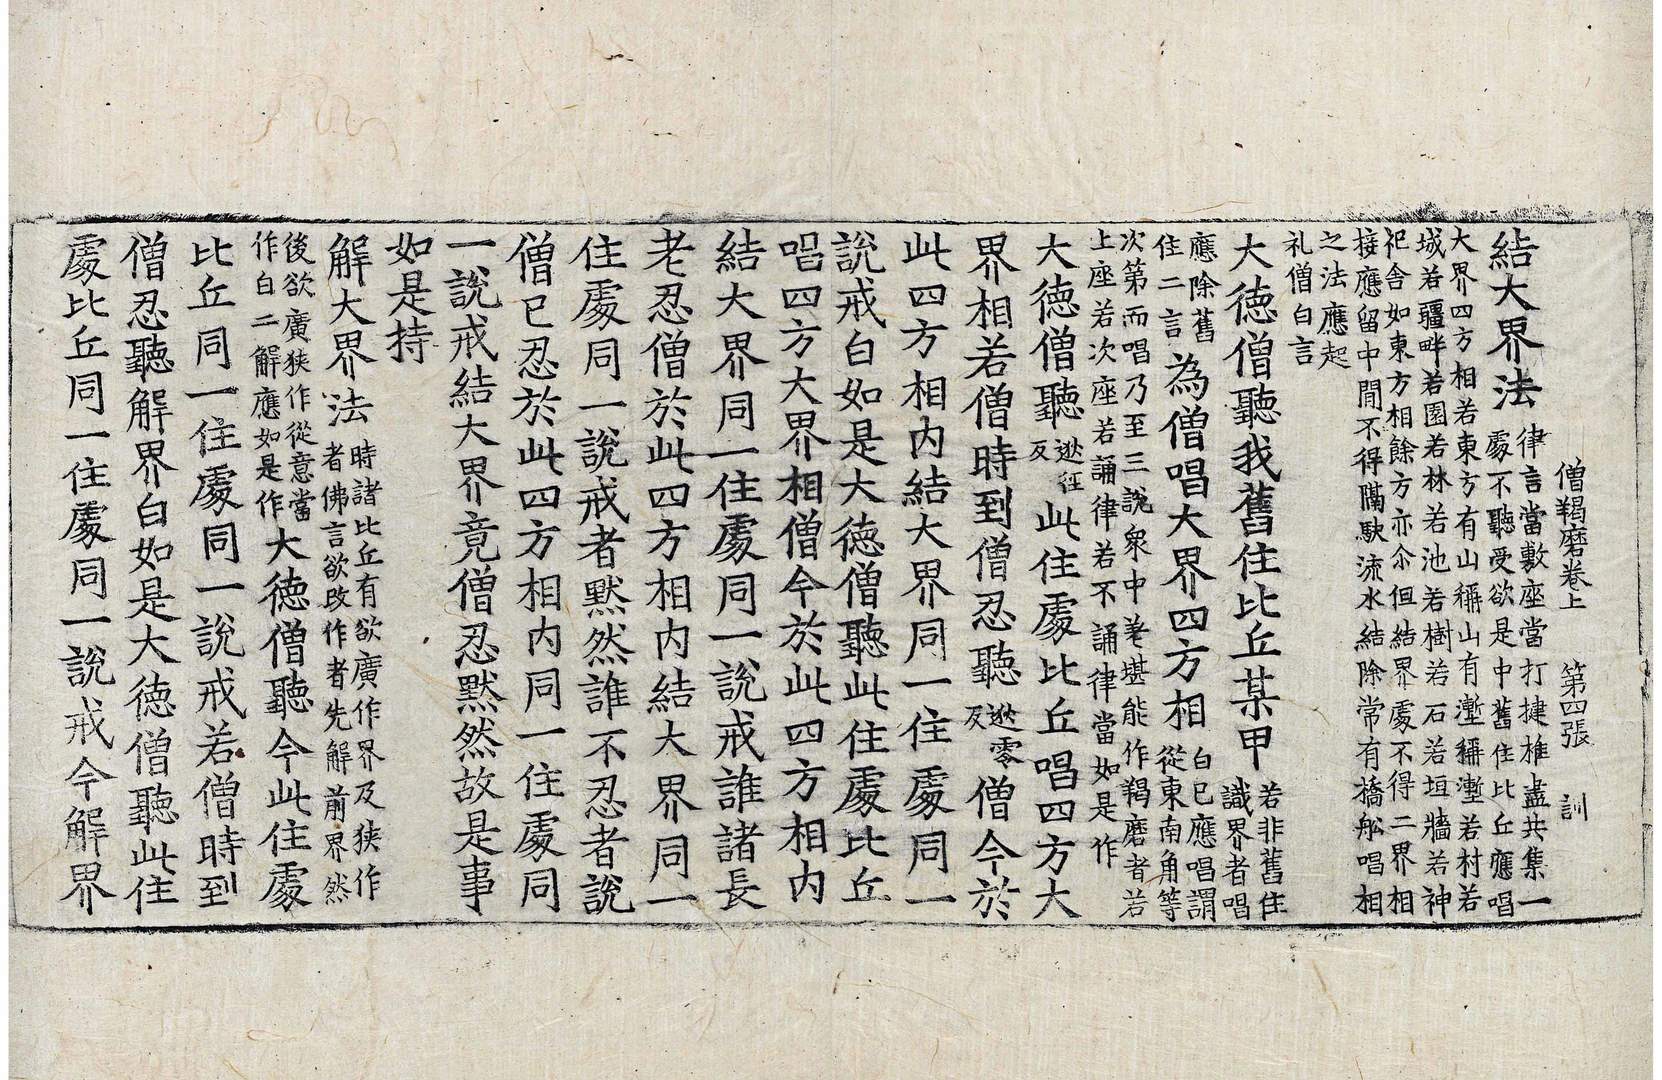 僧羯磨卷上　第四張　訓
結大界法
律言當敷座當打揵椎盡共集一
處不聽受欲是中舊住比丘應唱
大界四方相若東方有山稱山有壍稱壍若村若
城若疆畔若園若林若池若樹若石若垣牆若神
祀舍如東方相餘方亦尒但結界處不得二界相
接應留中間不得隔駛流水結除常有橋舩唱相
之法應起
礼僧白言
大德僧聽我舊住比丘某甲
若非舊住
識界者唱
應除舊
住二言
為僧唱大界四方相
白已應唱謂
從東南角等
次第而唱乃至三說衆中差堪能作羯磨者若
上座若次座若誦律若不誦律當如是作
大德僧聽
逖径
反
此住處比丘唱四方大
界相若僧時到僧忍聽
逖零
反
僧今於
此四方相内結大界同一住處同一
說戒白如是大德僧聽此住處比丘
唱四方大界相僧今於此四方相内
結大界同一住處同一說戒誰諸長
老忍僧於此四方相内結大界同一
住處同一說戒者默然誰不忍者說
僧已忍於此四方相内同一住處同
一說戒結大界竟僧忍默然故是事
如是持
解大界法
時諸比丘有欲廣作界及狹作
者佛言欲改作者先解前界然
後欲廣狹作從意當
作白二解應如是作
大德僧聽今此住處
比丘同一住處同一說戒若僧時到
僧忍聽解界白如是大德僧聽此住
處比丘同一住處同一說戒今解界